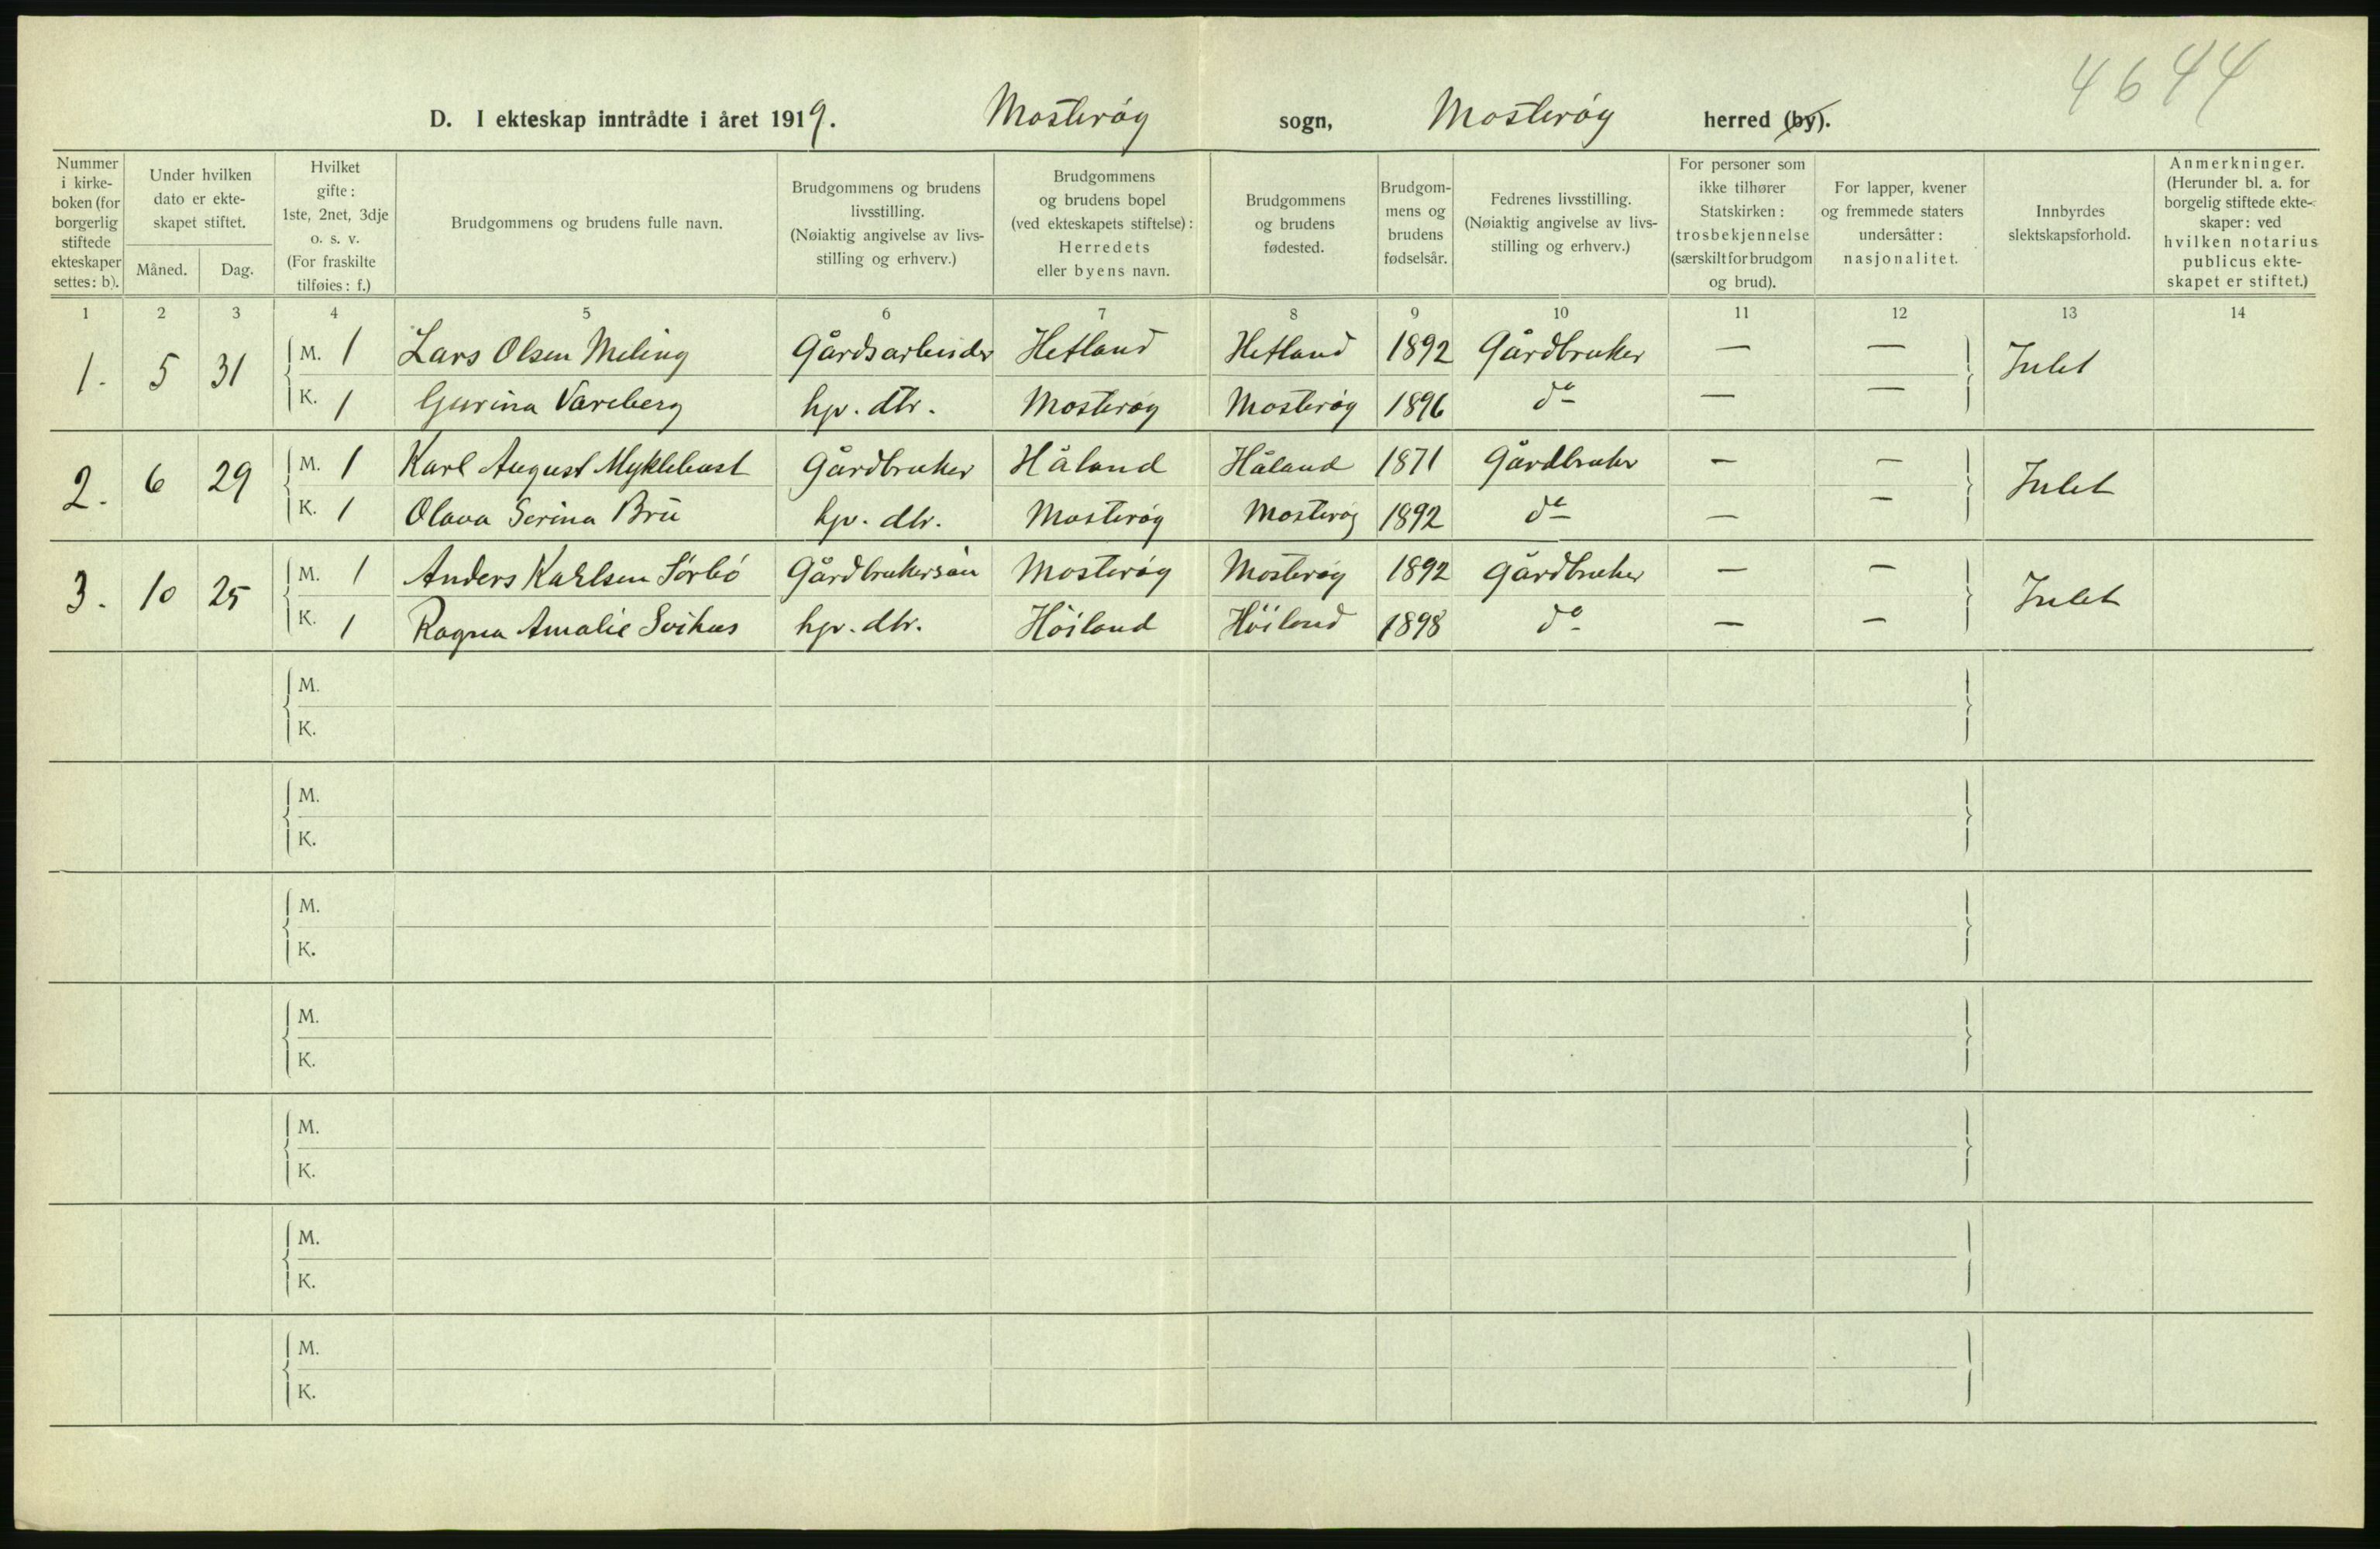 4644
D. I ekteskap inntrådte i året 1919. Mosterøy sogn, Mosterøy herred (by).
Nummer i kirke- boken (for borgerlig stiftede ekteskaper settes: b).
Under hvilken dato er ekte- skapet stiftet.
Måned. Dag.
Hvilket gifte: 1ste, 2net, 3dje o. s. v. (For fraskilte tilføies: f.)
Brudgommens og brudens fulle navn.
Brudgommens og brudens livsstilling. (Nøiaktig angivelse av livs- stilling og erhverv.)
Brudgommens og brudens bopel (ved ekteskapets stiftelse): Herredets eller byens navn.
Brudgommens og brudens fødested.
Brudgom- mens og brudens fødselsår.
Fedrenes livsstilling. (Nøiaktig angivelse av livs- stilling og erhverv.)
For personer som ikke tilhører Statskirken: trosbekjennelse (særskilt for brudgom og brud).
For lapper, kvener og fremmede staters undersåtter: nasjonalitet.
Innbyrdes slektskapsforhold.
Anmerkninger. (Herunder bl. a. for borgelig stiftede ekte- skaper: ved hvilken notarius publicus ekte- skapet er stiftet.)
1 2 3 4 5 6 7 8 9 10 11 12 13 14
1. 5 31 M. 1 Lars Olsen Meling Gårdsarbeider Hetland Hetland 1892 Gårdbruker — — Intet
K. 1 Gurina Vareberg hjv. dtr. Mosterøy Mosterøy 1896 do — —
2. 6 29 M. 1 Karl August Myklebust Gårdbruker Håland Håland 1871 Gårdbruker — — Intet
K. 1 Olava Serina Bru hjv. dtr. Mosterøy Mosterøy 1892 do — —
3. 10 25 M. 1 Anders Karlsen Sørbø Gårdbrukersøn Mosterøy Mosterøy 1892 Gårdbruker — — Intet
K. 1 Ragna Amalie Svihus hjv. dtr. Höiland Höiland 1898 do — —
M.
K.
M.
K.
M.
K.
M.
K.
M.
K.
M.
K.
M.
K.